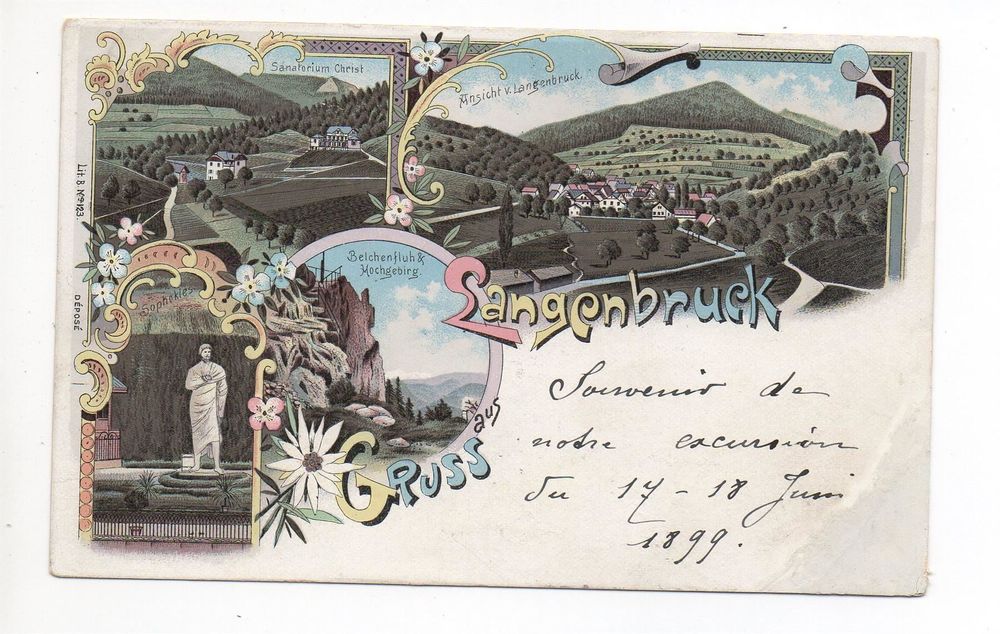 Sanatorium Christ
Ansicht v. Langenbruck.
Lit. B. No 123.
DÉPOSÉ
Sophokles
Belchenfluh &
Hochgebirg.
Gruss aus
Langenbruck
Souvenir de
notre excursion
du 17 - 18 Juin
1899.